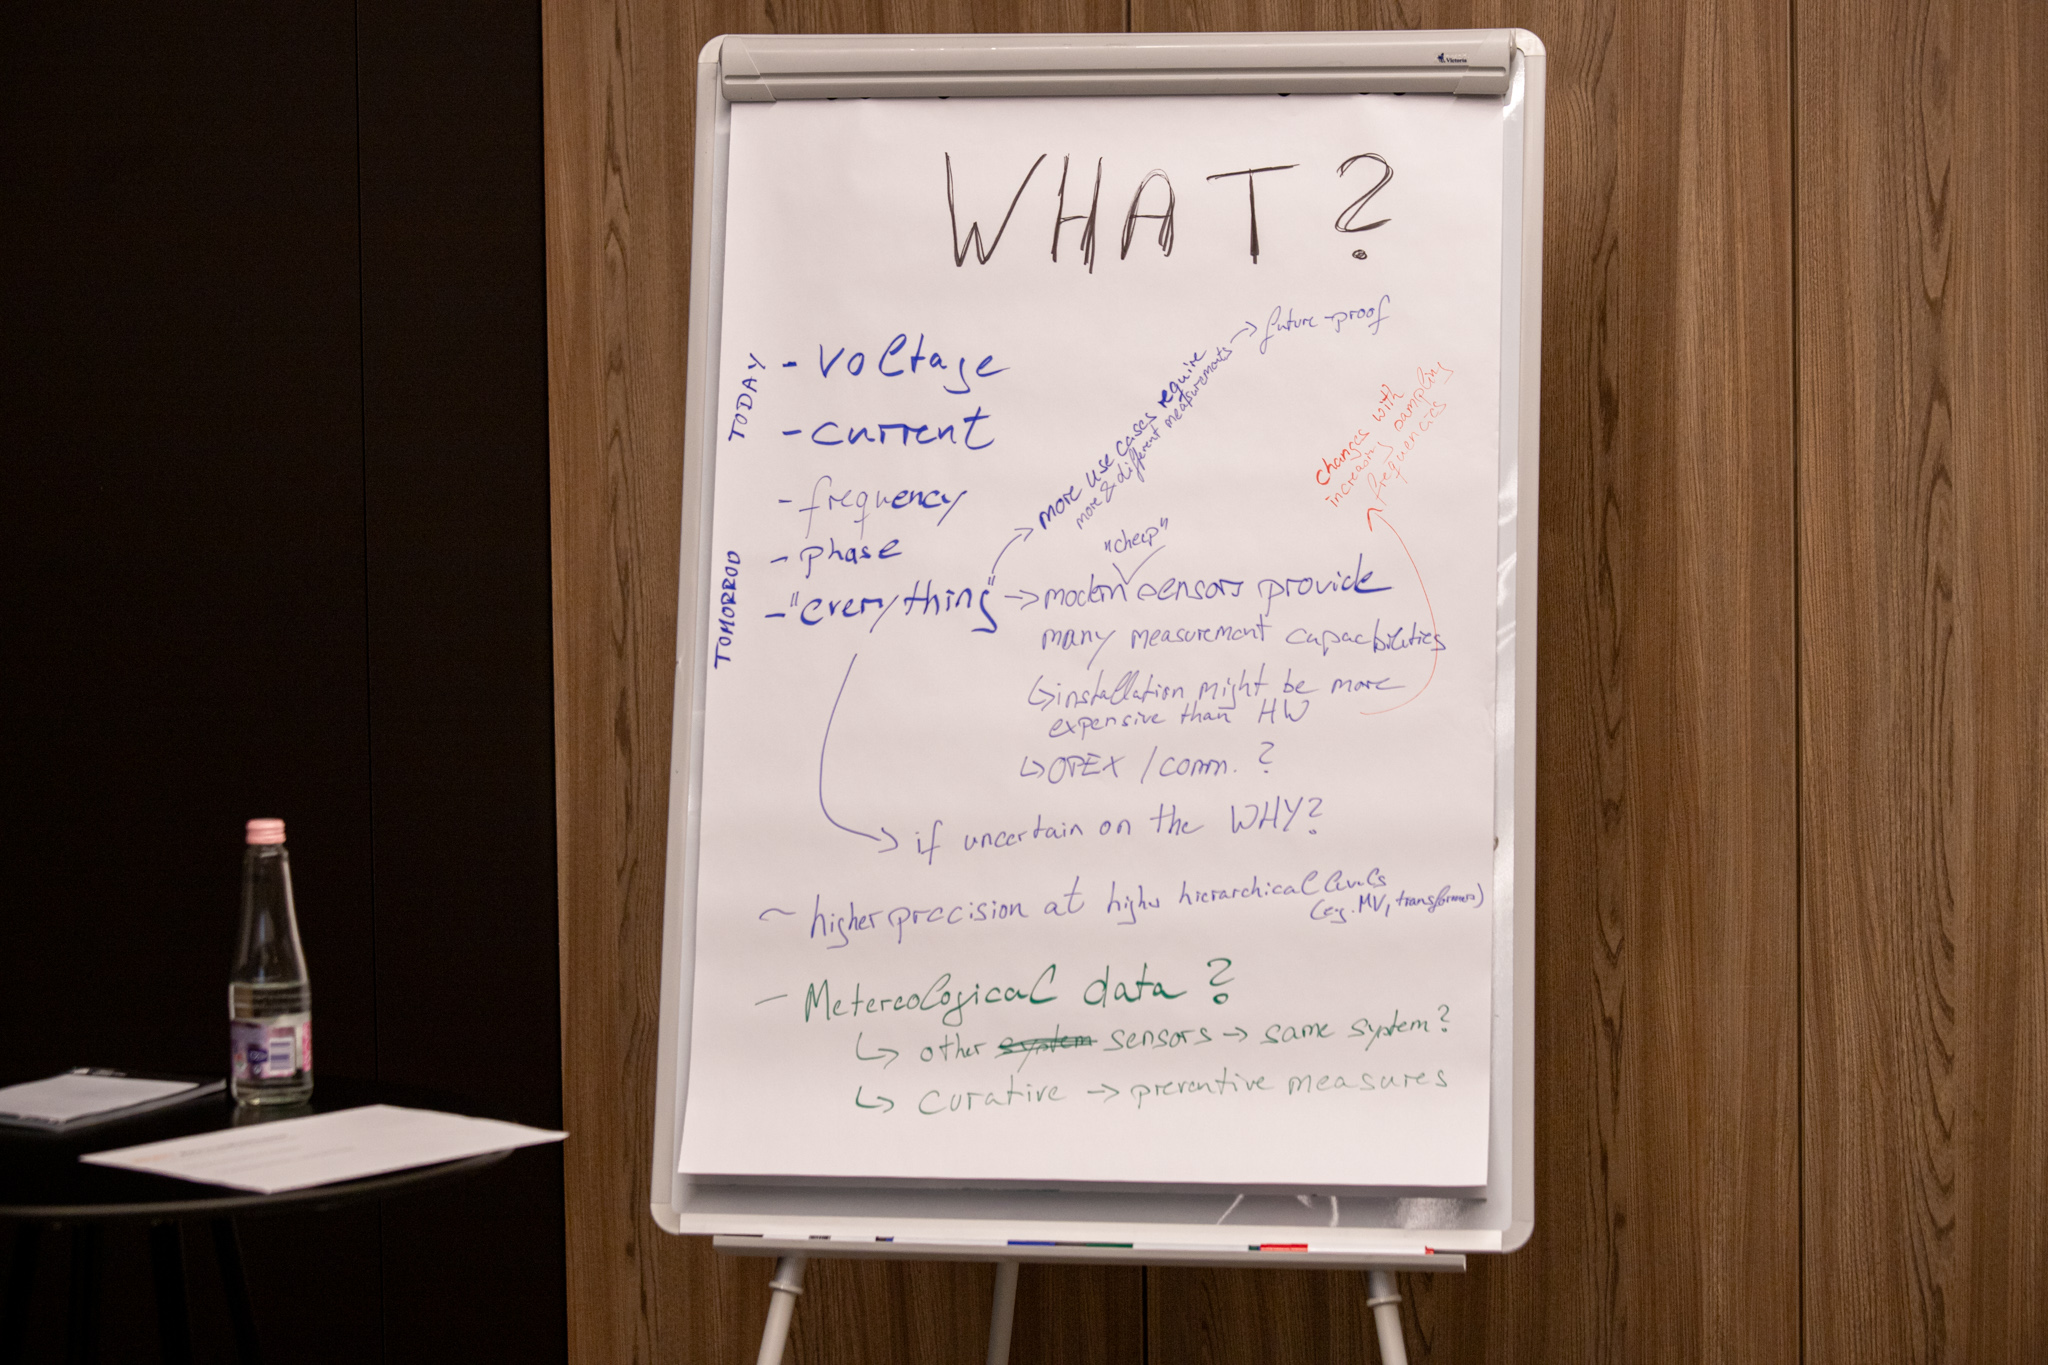 Victoria
WHAT?
TODAY
- voltage
- current
- frequency
- phase
TOMORROD
- "everything"
→ more use cases require
more & different measurements
→ future-proof
"cheap"
→ modern sensors provide
many measurement capacbilities
↳ installation might be more
expensive than HW
changes with
increasing sampling
frequencies
↳ OPEX / comm. ?
→ if uncertain on the WHY?
~ higher precision at higher hierarchical levels
(e.g. MV, transformers)
- Metereological data ?
↳ other system sensors → same system?
↳ curative → preventive measures